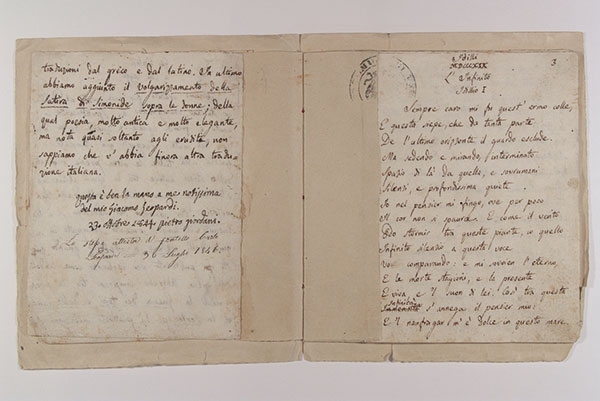 traduzioni dal greco e dal latino. In ultimo
abbiamo aggiunto il volgarizzamento della
Satira di Simonide sopra le donne; della
qual poesia, molto antica e molto elegante,
ma nota quasi soltanto agli eruditi, non
sappiamo che v'abbia finora altra tradu-
zione italiana.
questa è ben la mano a me notissima
del mio Giacomo Leopardi.
33 ottobre 1844 pietro giordani.
Lo stesso attesta il fratello Carlo
Leopardi 30 Luglio 1846.
Idilli
MDCCCXIX
L'Infinito
Idillio I
3
Sempre caro mi fu quest'ermo colle,
E questa siepe, che da tanta parte
De l'ultimo orizzonte il guardo esclude.
Ma sedendo e mirando, interminato
Spazio di là da quella, e sovrumani
Silenzi, e profondissima quiete
Io nel pensier mi fingo, ove per poco
Il cor non si spaura. E come il vento
Odo stormir tra queste piante, io quello
Infinito silenzio a questa voce
Vo comparando: e mi sovvien l'eterno,
E le morte stagioni, e la presente
E viva, e 'l suon di lei. Così tra questa
Infinità
Immensità s'annega il pensier mio:
E 'l naufragar m'è dolce in questo mare.